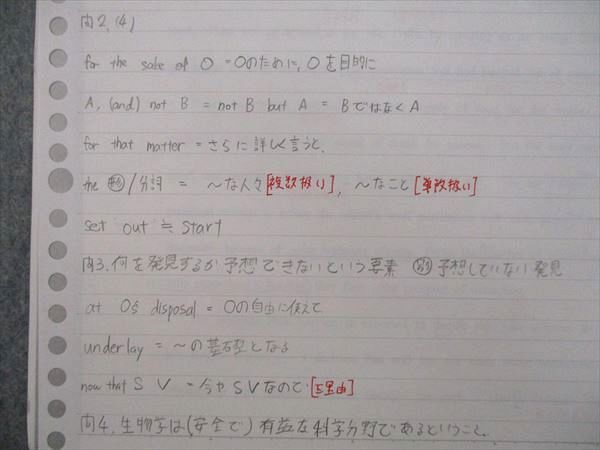 内2.(4)
for the sake of O = Oのために、Oを目的に
A, (and) not B = not B but A = BではなくA
for that matter = さらに詳しく言うと、
the 形/分詞 = 〜な人々[複数扱い], 〜なこと[単数扱い]
set out ≒ start
内3.何を発見するか予想できないという要素 別 予想していない発見
at O's disposal = Oの自由に使えて
underlay = 〜の基礎となる
now that S V = 今やSVなので[理由]
内4.生物学は(安全で)有益な科学分野であるということ。